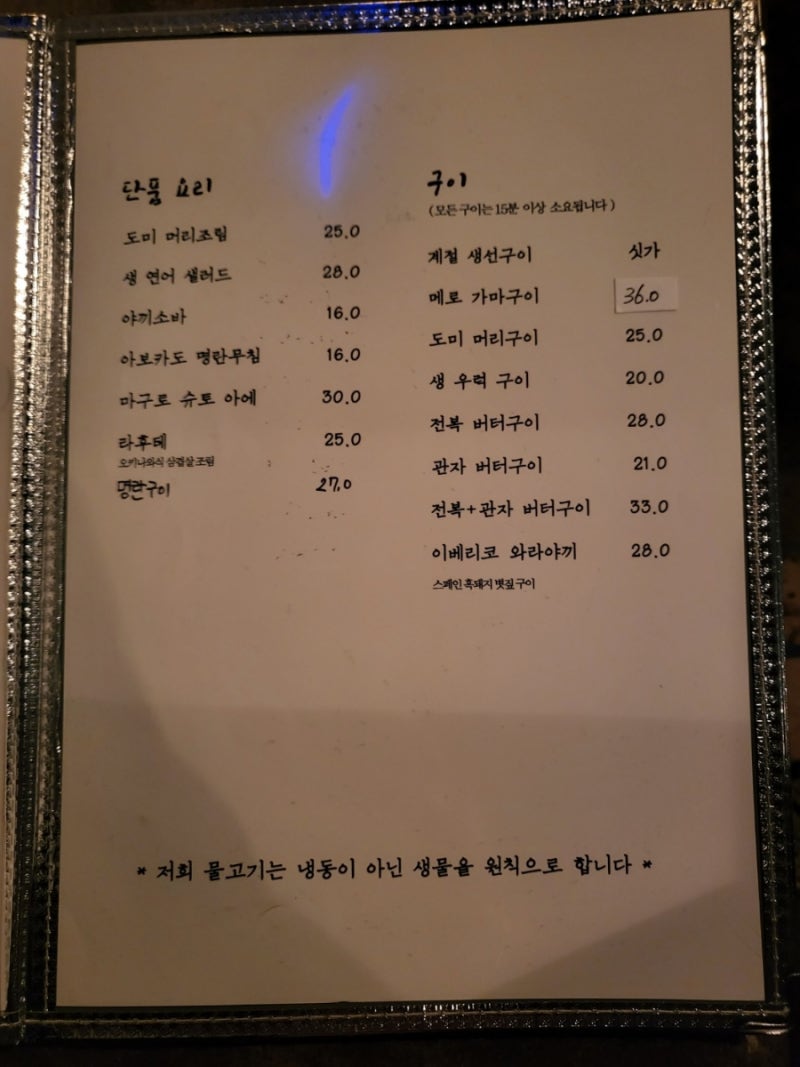 단품 요리
도미 머리조림 25.0
생 연어 샐러드 28.0
야끼소바 16.0
아보카도 명란무침 16.0
마구로 슈토 아에 30.0
라후테 25.0
오키나와식 삼겹살 조림
명란구이 27.0
구이
(모든 구이는 15분 이상 소요됩니다)
계절 생선구이 싯가
메로 가마구이 36.0
도미 머리구이 25.0
생 우럭 구이 20.0
전복 버터구이 28.0
관자 버터구이 21.0
전복+관자 버터구이 33.0
이베리코 와라야끼 28.0
스페인 흑돼지 볏짚 구이
* 저희 물고기는 냉동이 아닌 생물을 원칙으로 합니다 *